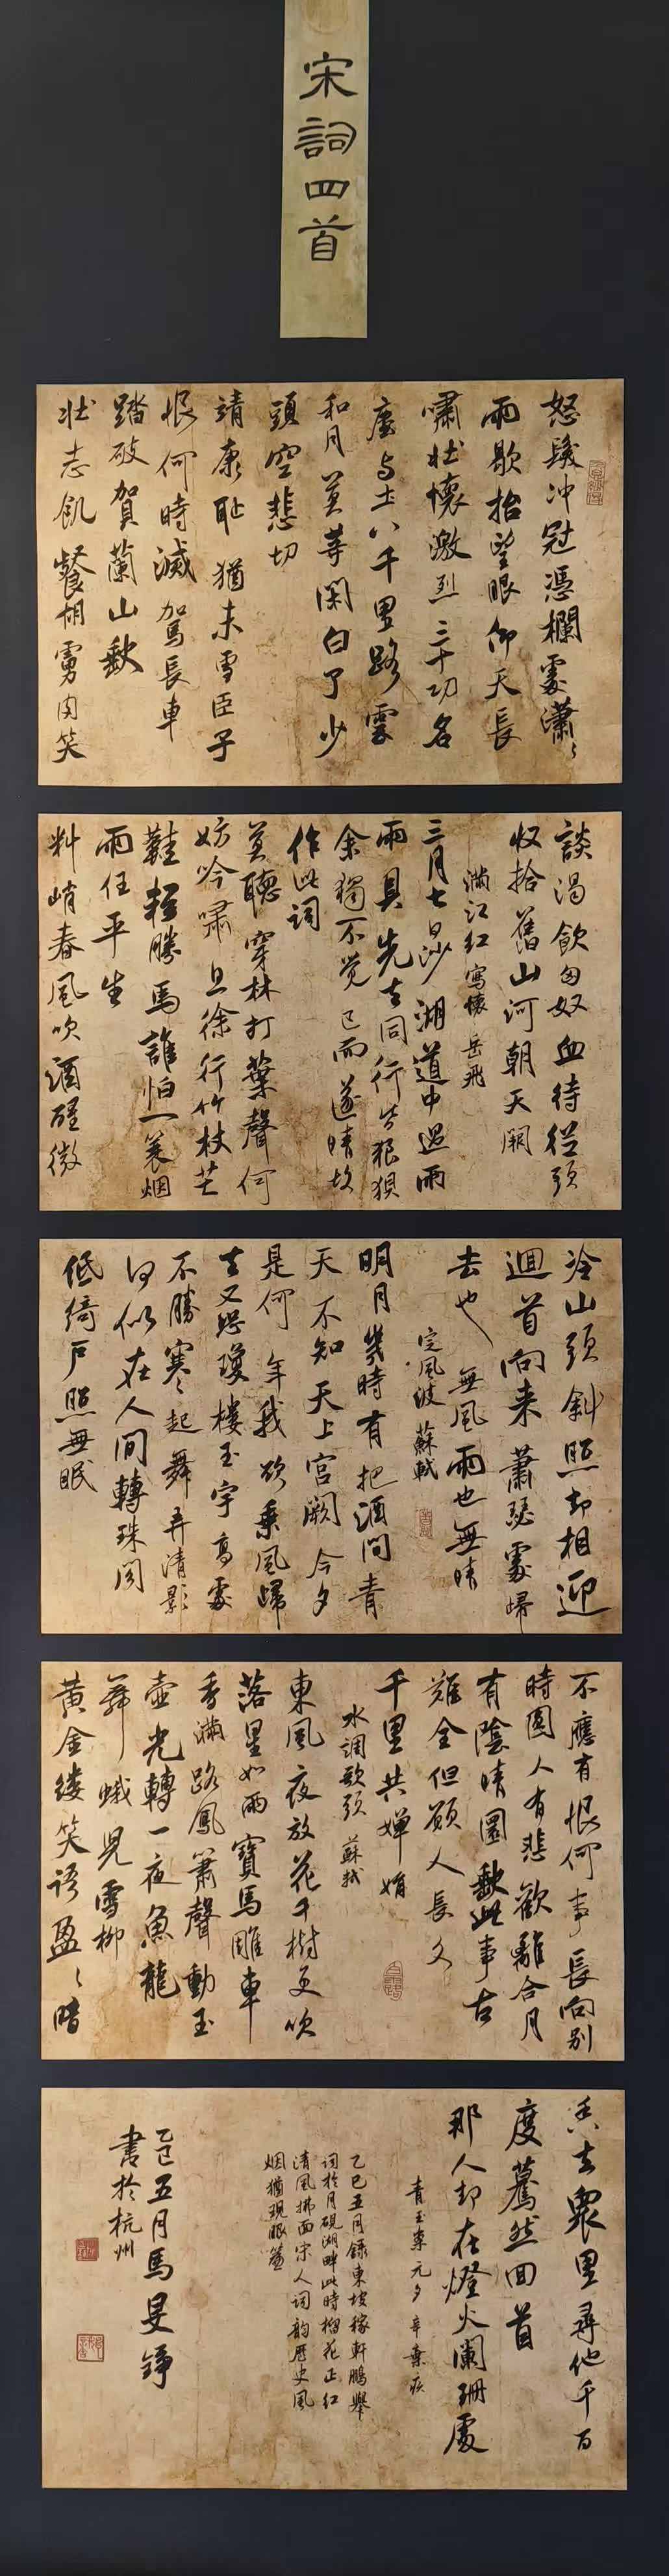 宋詞四首
怒髮冲冠憑欄處瀟々
雨歇抬望眼仰天長
嘯壯懷激烈三十功名
塵与土八千里路雲
和月莫等閑白了少
頭空悲切
靖康耻猶未雪臣子
恨何時滅駕長車
踏破賀蘭山缺
壯志飢餐胡虜肉笑
談渴飲匈奴血待從頭
收拾舊山河朝天闕
滿江紅 寫懷 岳飛
三月七日沙湖道中遇雨
雨具先去同行皆狼狽
余獨不觉已而遂晴故
作此詞
莫聽穿林打葉聲何
妨吟嘯且徐行竹杖芒
鞋輕勝馬誰怕一蓑烟
雨任平生
料峭春風吹酒醒微
冷山頭斜照却相迎
迴首向来蕭瑟處歸
去也無風雨也無晴
定風波 蘇軾
明月幾時有把酒問青
天不知天上宮闕今夕
是何年我欲乘風歸
去又恐瓊樓玉宇高處
不勝寒起舞弄清影
何似在人間轉珠閣
低綺户照無眠
不應有恨何事長向别
時圓人有悲歡離合月
有陰晴圓缺此事古
難全但願人長久
千里共嬋娟
水調歌頭 蘇軾
東風夜放花千樹更吹
落星如雨寶馬雕車
香滿路鳳簫聲動玉
壺光轉一夜魚龍
舞蛾兒雪柳
黄金縷笑语盈々暗
香去衆里尋他千百
度驀然回首
那人却在燈火闌珊處
青玉案 元夕 辛棄疾
乙巳五月録東坡稼軒鵬舉
词於月硯湖畔此時榴花正红
清風拂面宋人词韵歷史風
烟猶現眼簾
乙巳五月馬旻錚
書於杭州